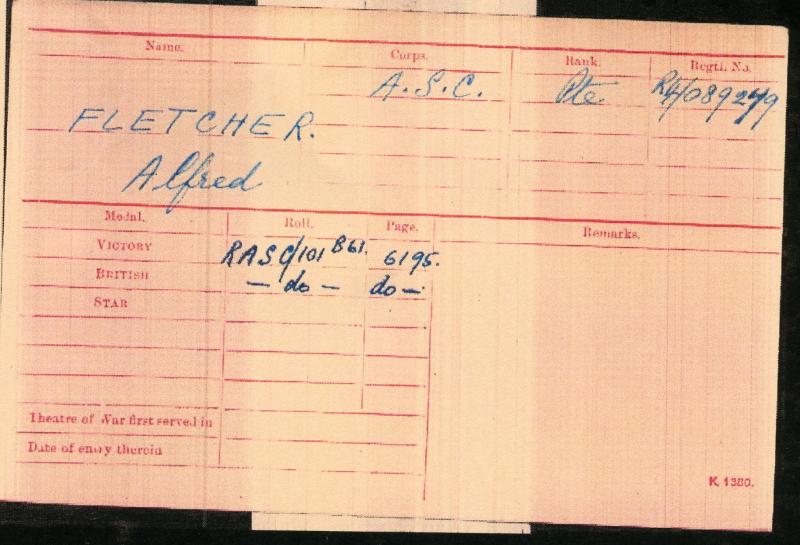 Name. Corps. Rank. Regtl. No.
A.S.C. Pte R4/089279
FLETCHER.
Alfred
Medal. Roll. Page. Remarks.
VICTORY RASC/101 B61. 6195.
BRITISH — do — do —
STAR
Theatre of War first served in
Date of entry therein
K. 1380.